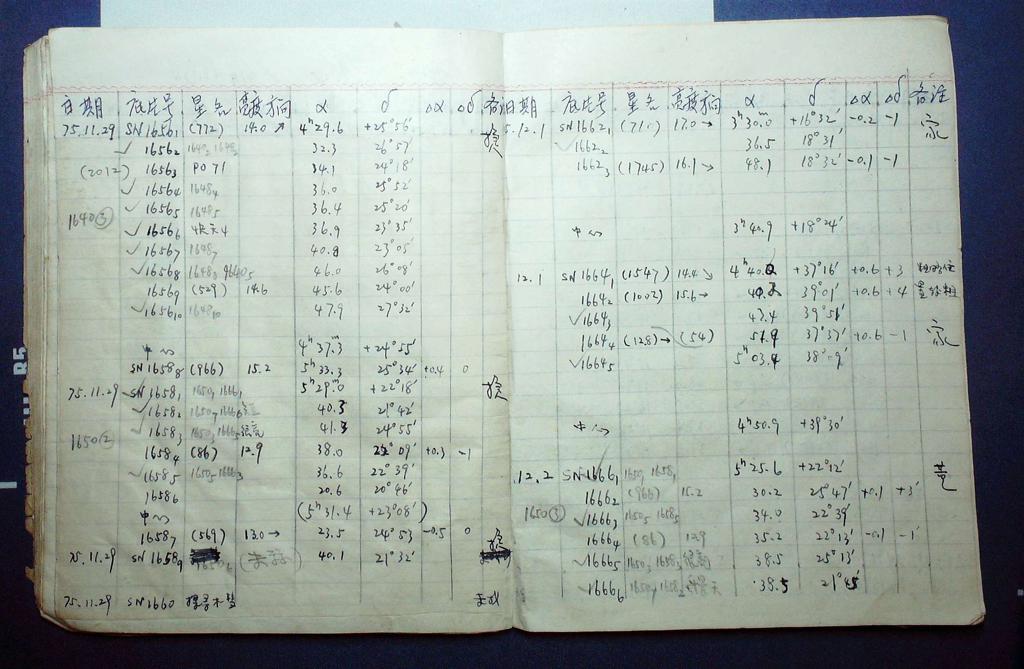 日期 底片号 星名 亮度方向 α δ Δα Δδ 备注
75.11.29 SN1656₁ (772) 14.0 ↗ 4ʰ29.6 +25°56′
✓ 1656₂ 32.3 26°57′
(2012) 1656₃ PO 71 34.1 24°18′
✓ 1656₄ 1648₄ 36.0 25°52′
✓ 1656₅ 1648₅ 36.4 25°20′
1640③
✓ 1656₆ 36.9 23°35′
✓ 1656₇ 1648₇ 40.8 23°05′
✓ 1656₈ 46.0 26°08′
1656₉ (529) 14.6 45.6 24°00′
✓ 1656₁₀ 1648₁₀ 47.9 27°32′
中心 4ʰ37.3 +24°55′
SN1658₈ (966) 15.2 5ʰ33.3 25°34′ +0.4 0
75.11.29 SN1658₁ 1650₁ 1666₁ 5ʰ29.0 +22°18′
✓ 1658₂ 40.5 21°42′
✓ 1658₃ 41.3 24°55′
1650②
1658₄ (86) 12.9 38.0 22°09′ +0.3 -1
✓ 1658₅ 1650₅ 1666₃ 36.6 22°39′
1658₆ 20.6 20°46′
中心 (5ʰ31.4 +23°08′)
1658₇ (569) 13.0 → 23.5 24°53 -0.5 0
75.11.29 SN1658₉ 40.1 21°32′
75.11.29 SN1660
日期 底片号 星名 亮度方向 α δ Δα Δδ 备注
5.12.1 SN1662₁ 17.0 → 3ʰ30.0 +16°32′ -0.2 -1
✓ 1662₂ 36.5 18°31′
1662₃ (1745) 16.1 → 48.1 18°32′ -0.1 -1
中心 3ʰ40.9 +18°24′
12.1 SN1664₁ (1547) 14.4 ↘ 4ʰ40.0 +37°16′ +0.6 +3
1664₂ (1002) 15.6 → 39°01′ +0.6 +4
✓ 1664₃ 43.4 39°51′
1664₄ (128) → (54) 51.9 37°37′ +0.6 -1
✓ 1664₅ 5ʰ03.4 38°09′
中心 4ʰ50.9 +39°30′
12.2 SN1666₁ 1650₁ 1658₁ 5ʰ25.6 +22°12′
1666₂ (966) 15.2 30.2 25°47′ +0.1 +3′
1650③
✓ 1666₃ 1650₅ 1658₅ 34.0 22°39′
1666₄ (86) 12.9 35.2 22°13′ -0.1 -1′
✓ 1666₅ 38.5 25°13′
✓ 1666₆ 38.5 21°45′